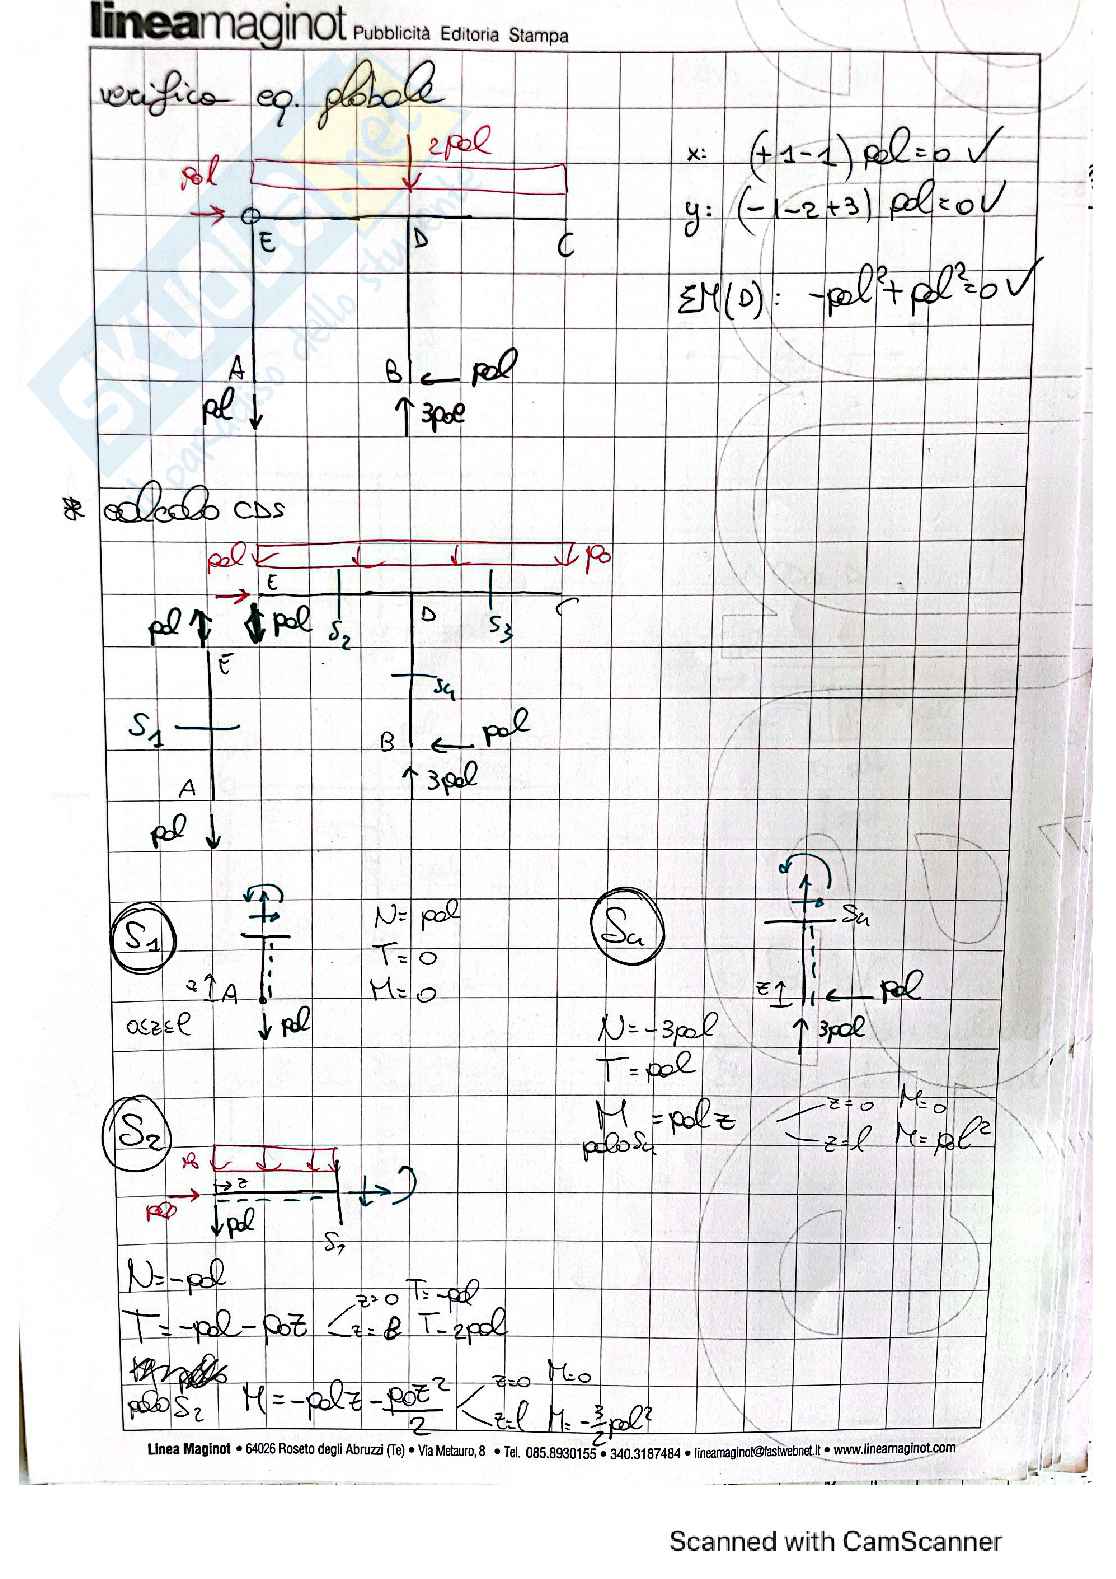 lineamaginot Pubblicità Editoria Stampa
verifica eq. globale
2pol
pol
E
D
C
A
B
pol
pol
3pol
x: (+1-1) pol = 0 ✓
y: (-1-2+3) pol = 0 ✓
ΣM(D): -pol²+pol²=0 ✓
* calcolo CDS
pol
po
E
D
C
pol
pol
S2
S3
E
S4
S1
B
pol
3pol
A
pol
S1
N= pol
T= 0
M= 0
z
A
0≤z≤l
pol
S4
S4
z
pol
3pol
N=-3pol
T=pol
M =polz
polo S4
z=0 M=0
z=l M=pol²
S2
z
pol
pol
N=-pol
T=-pol-poz
z=0 T=-pol
z=l T-2pol
polo S2
M=-polz-poz²/2
z=0 M=0
z=l M=-3/2pol²
Linea Maginot • 64026 Roseto degli Abruzzi (Te) • Via Metauro, 8 • Tel. 085.8930155 • 340.3187484 • lineamaginot@fastwebnet.it • www.lineamaginot.com
Scanned with CamScanner
SKUOLA.net